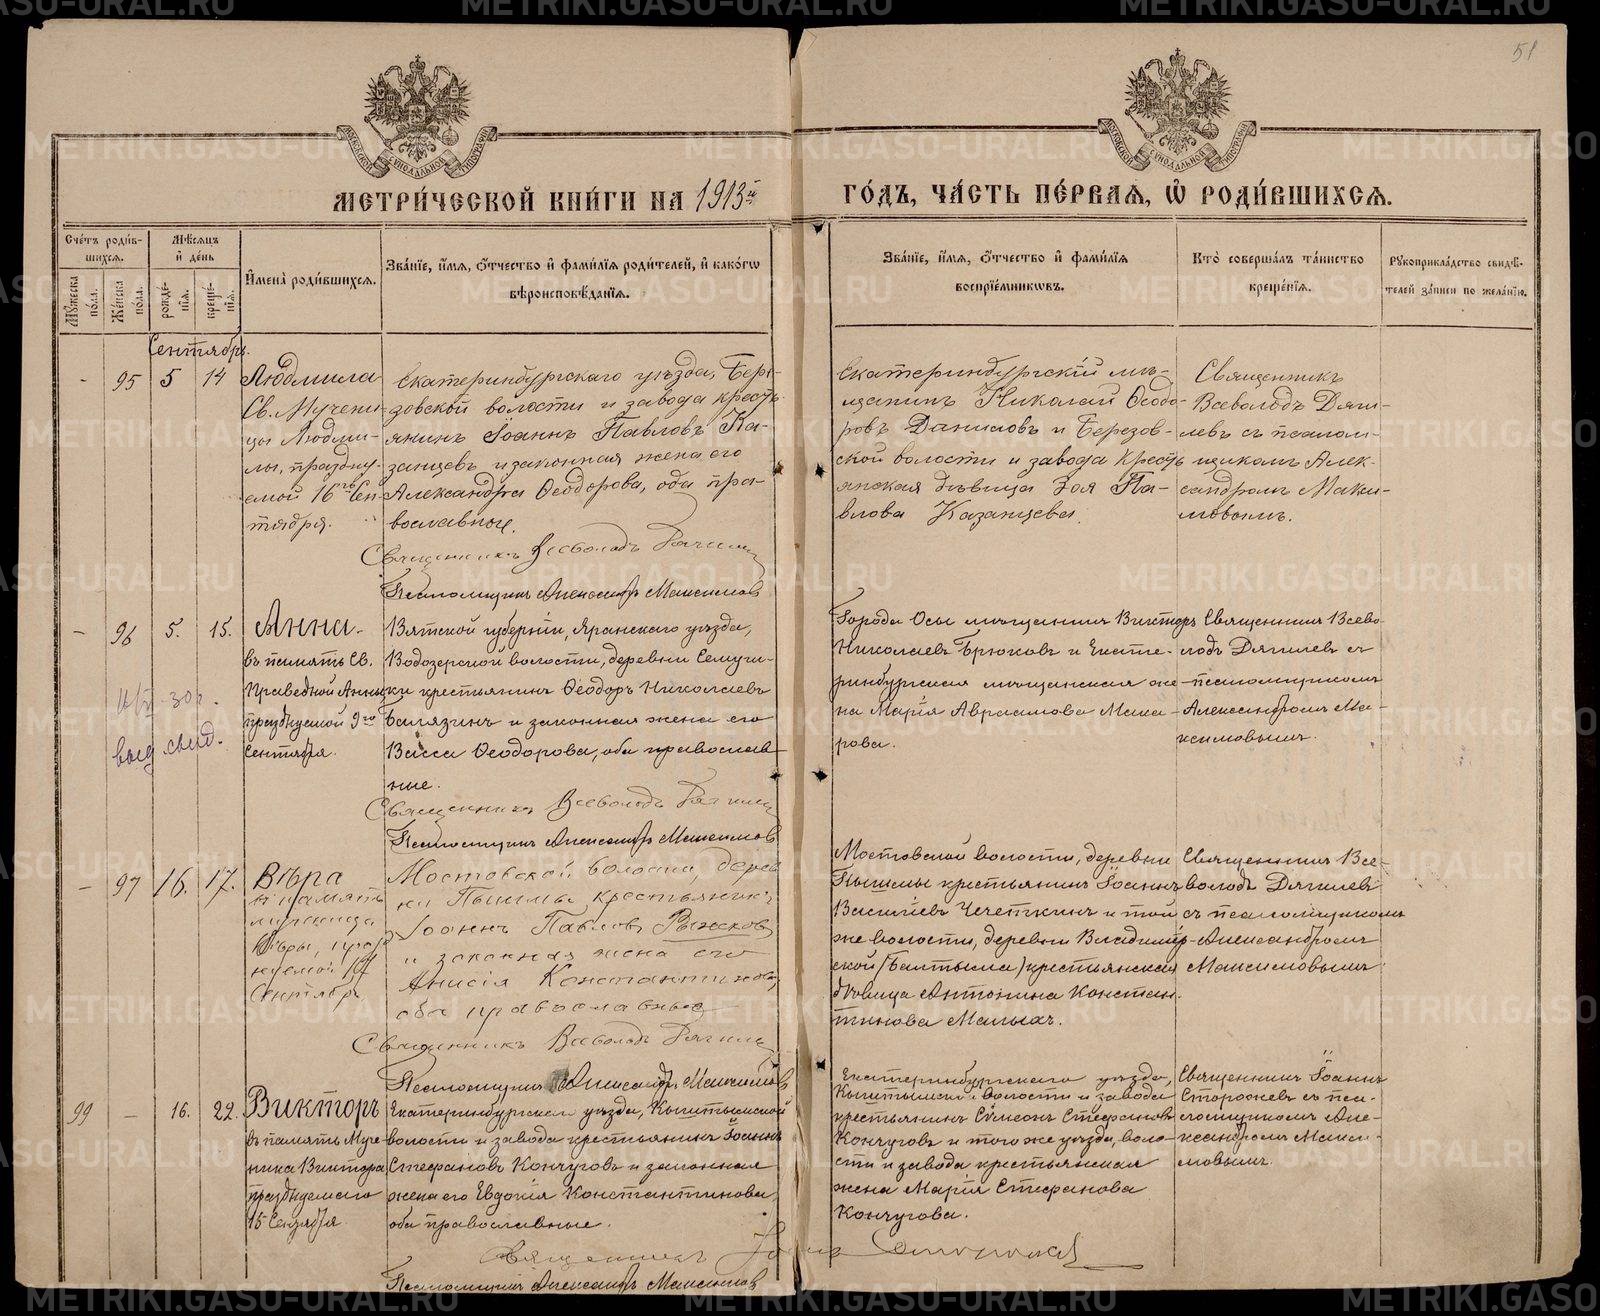 51
МОСКОВСКОЙ СѴНОДАЛЬНОЙ ТИПОГРАФІИ
МОСКОВСКОЙ СѴНОДАЛЬНОЙ ТИПОГРАФІИ
МЕТРИ́ЧЕСКОЙ КНИ́ГИ НА 1913й
ГО́ДЪ, ЧА́СТЬ ПЕ́РВАЯ, Ѿ РОДИ́ВШИХСЯ.
Сче́тъ роди́в-
шихся.
Му́жеска по́ла.
Же́нска по́ла.
Мѣ́сяцъ
и҆ де́нь
рожде́-
нія.
креще́-
нія.
И҆мена̀ роди́вшихся.
Зва́ніе, и҆́мя, ѻ҆́тчество и҆ фами́лія роди́телей, и҆ како́гѡ
вѣроисповѣ́данія.
Зва́ніе, и҆́мя, ѻ҆́тчество и҆ фами́лія
воспріе́мниковъ.
Кто̀ соверша́лъ та́инство
креще́нія.
Рꙋкоприкла́дство свидѣ́-
телей за́писи по жела́нію.
Сентябрь.
- 95 5 14
Людмила
Св. Мучени-
цы Людми-
лы, праздну-
емой 16го Сен-
тября.
Екатеринбургскаго уѣзда, Бере-
зовской волости и завода кресть-
янинъ Іоаннъ Павловъ Ка-
занцевъ и законная жена его
Александра Ѳеодорова, оба пра-
вославные.
Священникъ Всеволодъ Дягилевъ
Псаломщикъ Александръ Максимовъ
Екатеринбургскій мѣ-
щанинъ Николай Ѳеодо-
ровъ Даниловъ и Березов-
ской волости и завода кресть-
янская дѣвица Зоя Па-
влова Казанцева.
Священникъ
Всеволодъ Дяги-
левъ съ псалом-
щикомъ Алек-
сандромъ Макси-
мовымъ.
- 96 5. 15.
выд. свид.
Анна.
въ память Св.
Праведной Анны
празднуемой 9го
Сентября.
Вятской губерніи, Яранскаго уѣзда,
Водозерской волости, деревни
крестьянинъ Ѳеодоръ Николаевъ
Балязинъ и законная жена его
Васса Ѳеодорова, оба православ-
ные.
Священникъ Всеволодъ Дягилевъ
Псаломщикъ Александръ Максимовъ
Города Осы мѣщанинъ Викторъ
Николаевъ Брюховъ и Екате-
ринбургская мѣщанская же-
на Марія Авраамова Мака-
рова.
Священникъ Всево-
лодъ Дягилевъ съ
псаломщикомъ
Александромъ Ма-
ксимовымъ.
- 97 16. 17.
Вѣра
въ память
мученицы
Вѣры, празд-
нуемой 17
Сентября
Мостовской волости, дерев-
ни Пышмы крестьянинъ
Іоаннъ Павловъ Рыжковъ
и законная жена его
Анисія Константинова,
оба православные
Священникъ Всеволодъ Дягилевъ
Псаломщикъ Александръ Максимовъ
Мостовской волости, деревни
Пышмы крестьянинъ Іоаннъ
Василіевъ Чечеткинъ и той
же волости, деревни Владимір-
ской (Балтыма) крестьянская
дѣвица Антонина Констан-
тинова Малыхъ.
Священникъ Все-
володъ Дягилевъ
съ псаломщикомъ
Александромъ
Максимовымъ.
99 - 16. 22.
Викторъ
въ память Муче-
ника Виктора
празднуемаго
15 Сентября
Екатеринбургскаго уѣзда, Кыштымской
волости и завода крестьянинъ Іоаннъ
Стефановъ Кончуговъ и законная
жена его Евдокія Константинова,
оба православные.
Священникъ Іоаннъ Сторожевъ
Псаломщикъ Александръ Максимовъ
Екатеринбургскаго уѣзда,
Кыштымской волости и завода
крестьянинъ Сѵмеонъ Стефановъ
Кончуговъ и того же уѣзда, воло-
сти и завода крестьянская
жена Марія Стефанова
Кончугова.
Священникъ Іоаннъ
Сторожевъ съ пса-
ломщикомъ Але-
ксандромъ Макси-
мовымъ.
METRIKI.GASO-URAL.RU